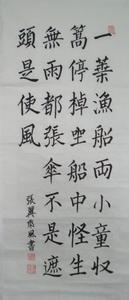 一葉漁船兩小童収
篙停棹坐船中怪生
無雨都張傘不是遮
頭是使風
張翼飛風書